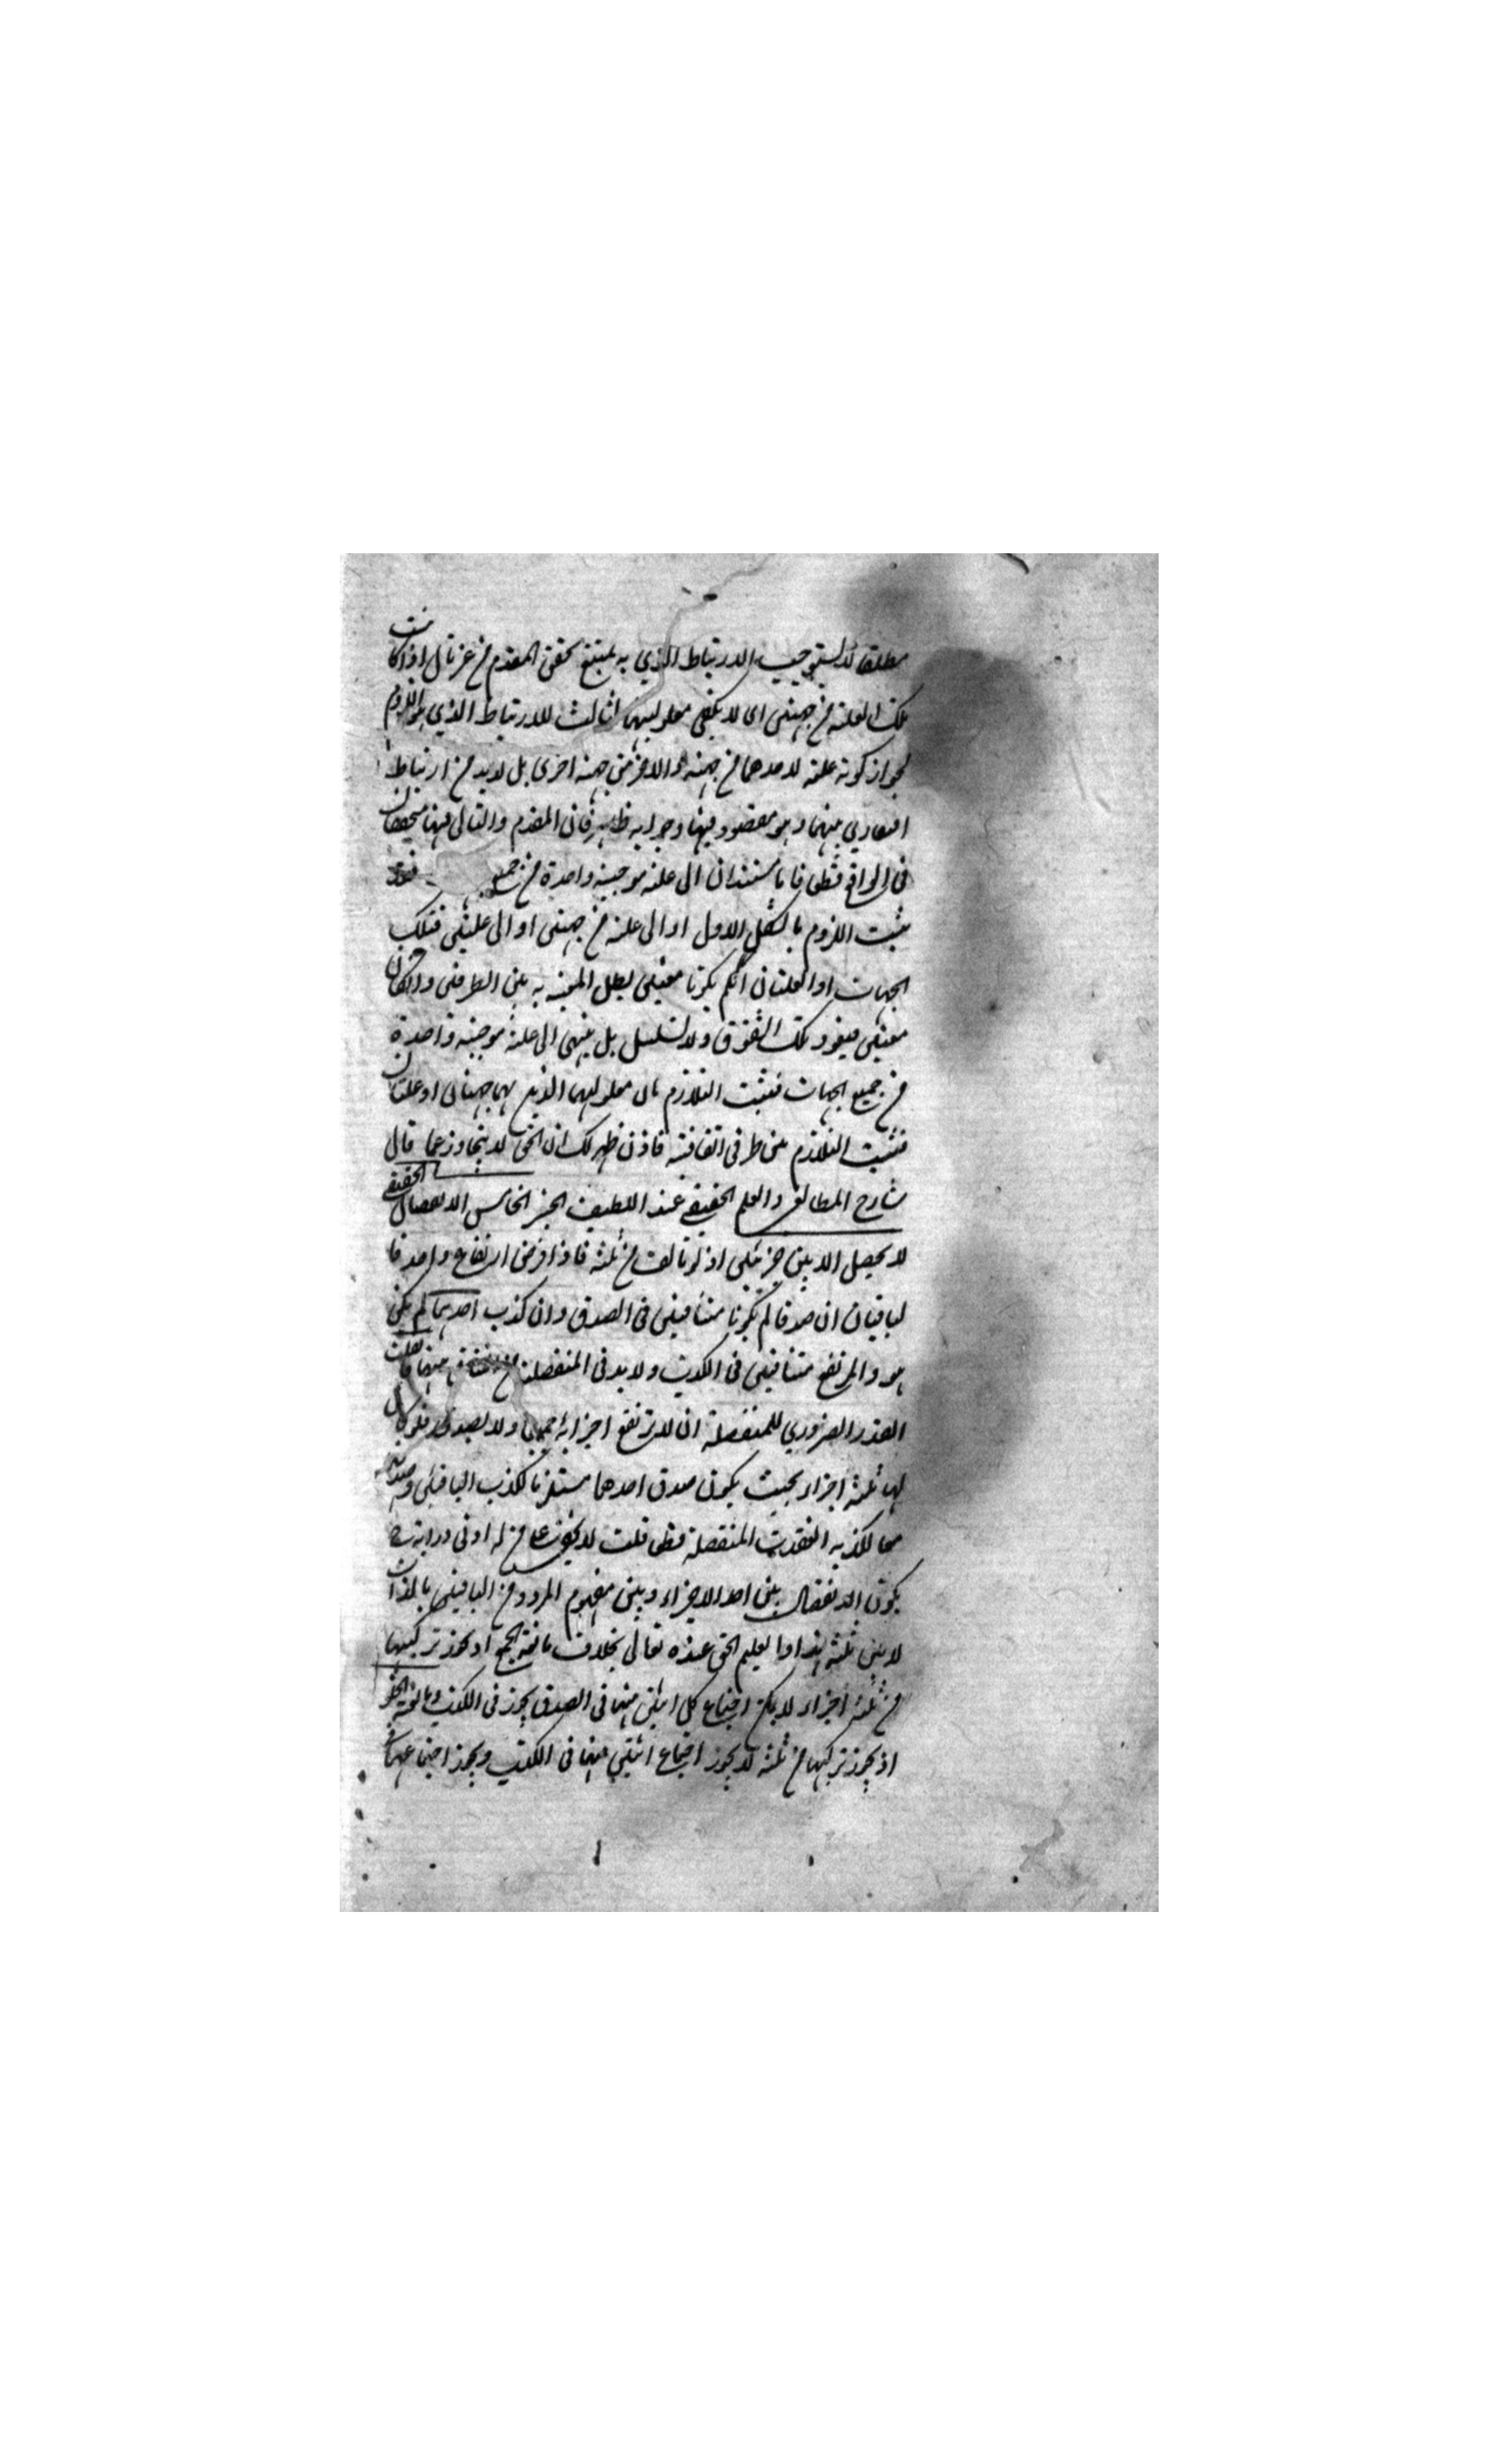 مطلقا لا يستوجب الارتباط الذي به يمتنع تحقق المقدم من غير تال اذا كانت
تلك العلة من جهتين اى لا يكفى معلوليتهما لثالث للارتباط الذي هو اللزوم
لجواز كونه علة لاحدهما من جهة والاخر من جهة اخرى بل لا بد من ارتباط
افتقاري بينهما وهو مفقود فيها وجوابه ظاهر فان المقدم والتالى فيها متحققان
فى الواقع قطعا فاما مستندان الى علة موجبة واحدة من جميع
يثبت اللزوم بالشكل الاول او الى علة من جهتين او الى علتين فتلك
الجهات او العلتان ان لم يكونا معيتين بطل المعية به بين الطرفين وان كان
معيتين فيعود تلك الشقوق ولا تسلسل بل ينتهى الى علة موجبة واحدة
من جميع الجهات فيثبت التلازم بين معلوليهما الذين هما جهتان او علتان
فيثبت التلازم بين طرفى اتفاقية فاذن ظهر لك ان الحق لا يتجاوز عما قال
شارح المطالع والعلم الحقيقى عند اللطيف الخبير الخامس الانفصال الحقيقى
لا يحصل الا بين جزئين اذ لو تالفت من ثلثة فاذا فرض ارتفاع واحد فا
لباقيان ان صدقا لم يكونا متنافيين فى الصدق وان كذب احدهما لم يكن
هو والمرتفع متنافيين فى الكذب ولا بد فى المنفصلة من منافاة بينهما فان قلت
القدر الضروري للمنفصلة ان لا ترتفع اجزائه جميعا ولا يصدق فلو كان
لها ثلثة اجزاء بحيث يكون صدق احدهما مستلزما لكذب الباقيين وصدقه
محالكذبه انعقدت المنفصلة قطعا قلت لا يخفى على من له ادنى دراية ح
يكون الانفصال بين احد الاجزاء وبين مفهوم المردد من الباقيين بالذات
لا بين ثلثة هذا والعليم الحق عنده تعالى بخلاف مانعة الجمع اذ يجوز تركيبها
من ثلثة اجزاء لا يمكن اجتماع كل اثنين منها فى الصدق يجوز فى الكذب ومانعة الخلو
اذ يجوز تركيبها من ثلثة لا يجوز اجتماع اثنين منها فى الكذب ويجوز اجتماعها فى